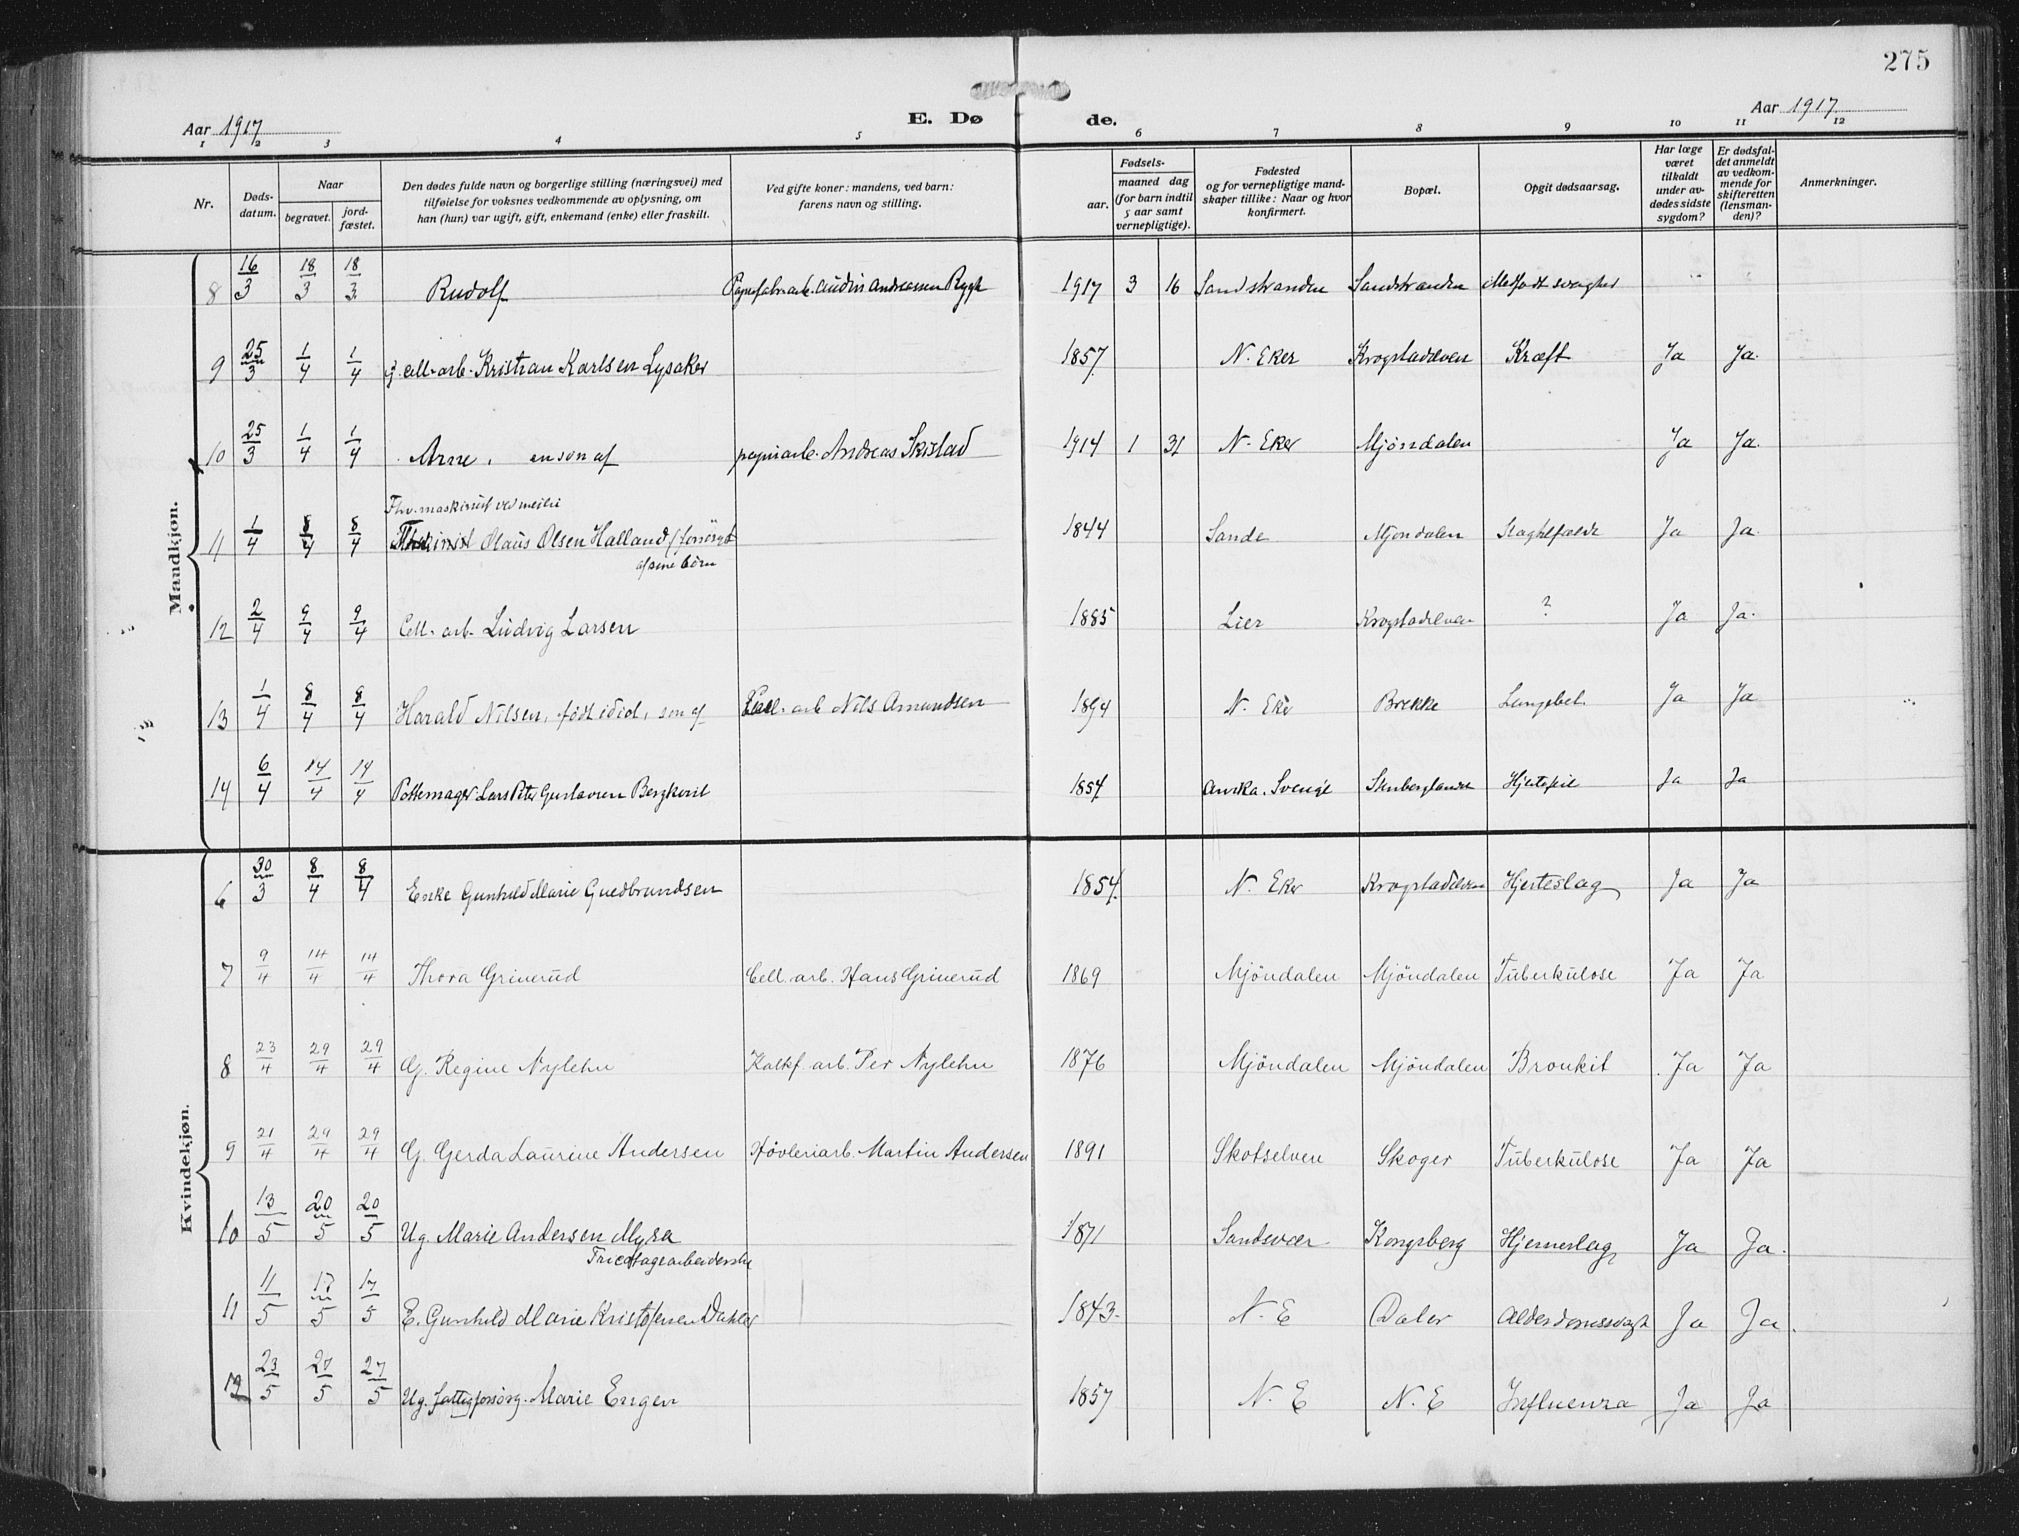 275
Aar 1917
E. Dø de.
Aar 1917
1 2 3 4 5 6 7 8 9 10 11 12
Nr.
Døds-
datum.
Naar
begravet.
jord-
fæstet.
Den dødes fulde navn og borgerlige stilling (næringsvei) med
tilføielse for voksnes vedkommende av oplysning, om
han (hun) var ugift, gift, enkemand (enke) eller fraskilt.
Ved gifte koner: mandens, ved barn:
farens navn og stilling.
Fødsels-
aar.
maaned dag
(for barn indtil
5 aar samt
vernepligtige).
Fødested
og for vernepligtige mand-
skaper tillike: Naar og hvor
konfirmert.
Bopæl.
Opgit dødsaarsag.
Har læge
været
tilkaldt
under av-
dødes sidste
sygdom?
Er dødsfal-
det anmeldt
av vedkom-
mende for
skifteretten
(lensman-
den)?
Anmerkninger.
Mandkjøn.
8 16/3 18/3 18/3 Rudolf Andreassen Rygh 1917 3 16 Sandstranden Sandstranden Medfødt svaghet " "
9 25/3 1/4 1/4 g. cell-arb. Kristian Karlsen Lysaker 1857 N. Eker Krogstadelven Kræft Ja Ja.
10 25/3 1/4 1/4 Arne, en søn af papirarb. Andreas Skistad 1914 1 31 N. Eker Mjøndalen Ja Ja.
Fhv. maskinist ved meieri
11 1/4 8/4 8/4 Olaus Olsen Halland (forsörget 1844 Sande Mjøndalen Ja Ja.
af sine börn
12 2/4 9/4 9/4 Cell. arb. Ludvig Larsen 1885 Lier Krogstadelven ? Ja Ja.
13 1/4 8/4 8/4 Harald Nilsen, født idiot, søn af Cell. arb Nils Amundsen 1894 N. Eker Brekke Lungebet. Ja Ja
14 6/4 14/4 14/4 Pottemager Lars Peter Gustavsen Bergkvist 1854 Sverige Stenberglandet Hjertefeil Ja Ja
Kvindekjøn.
6 30/3 8/4 8/4 Enke Gunhild Marie Guldbrandsen 1854. N. Eker Krogstadelven Hjerteslag Ja Ja
7 9/4 14/4 14/4 Thora Grinerud Cell. arb. Hans Grinerud 1869 Mjöndalen Mjöndalen Tuberkulose Ja Ja
8 23/4 29/4 29/4 G. Regine Nylehn Kalkf. arb. Per Nylehn 1876 Mjöndalen Mjöndalen Bronkit Ja Ja
9 21/4 29/4 29/4 G. Gerda Laurine Andersen Høvleriarb. Martin Andersen 1891 Skotselven Skoger Tuberkulose Ja Ja
10 13/5 20/5 20/5 Ug. Marie Andersen Myra 1871 Sandsvær Kongsberg Hjerneslag Ja Ja.
Tricotagearbeiderske
11 11/5 17/5 17/5 E. Gunhild Marie Kristofersen Dahler 1843. N. E Daler Alderdomssvagh Ja Ja.
12 23/5 27/5 27/5 Ug. fattigforsørg. Marie Engen 1857 N. E N. E Influenza Ja Ja